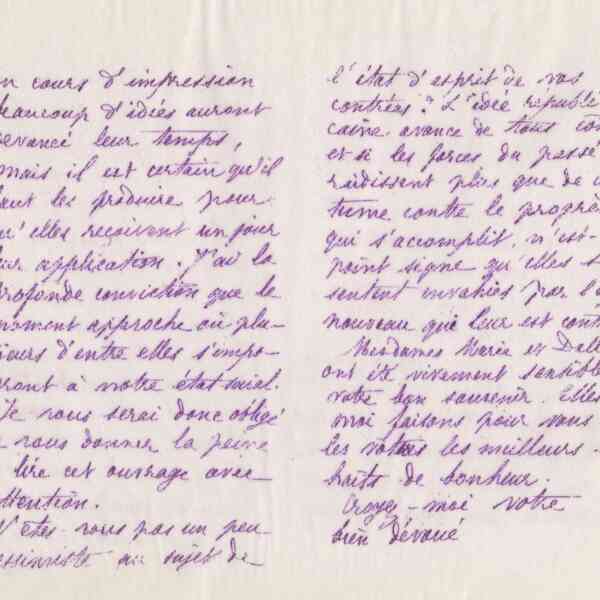 n cours d'impression
beaucoup d'idées auront
devancé leur temps,
mais il est certain qu'il
faut les produire pour
qu'elles reçoivent un jour
leur application. J'ai la
profonde conviction que le
moment approche où plu-
sieurs d'entre elles s'impo-
seront à notre état social.
Je vous serai donc obligé
e vous donner la peine
lire cet ouvrage avec
attention.
N'êtes-vous pas un peu
pessimiste au sujet de
l'état d'esprit de vos
contrées? L'idée républi
caine avance de tous côt
et si les forces du passé
raidissent plus que de c
tume contre le progrès
qui s'accomplit, n'est-
point signe qu'elles s
sentent envahies par l'e
nouveau qui leur est cont
Mesdames Marie et Dall
ont été vivement sensible
votre bon souvenir. Elles
moi faisons pour vous
les vœux les meilleurs.
haits de bonheur.
Croyez-moi votre
bien dévoué